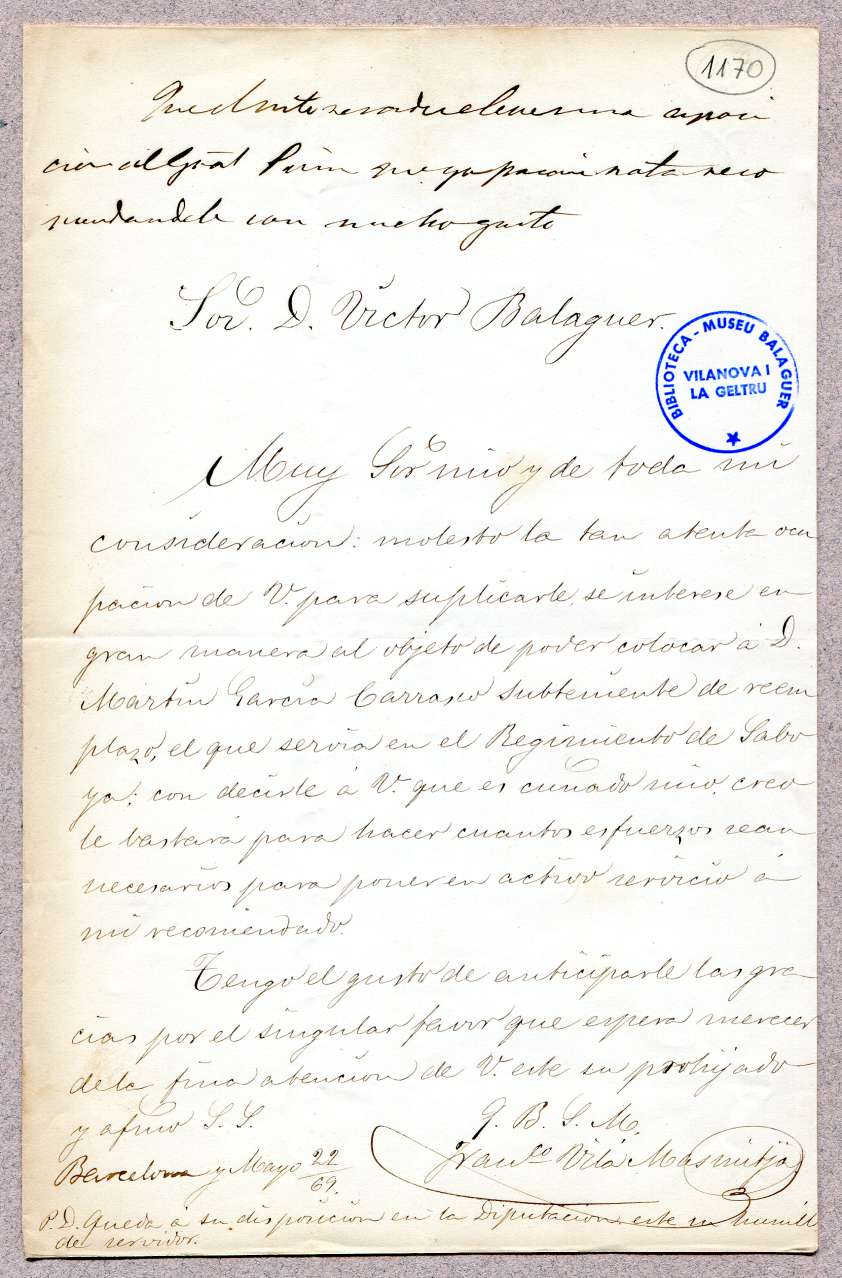 1170
Que el
cion al Gral Prim que yo
mendandole con mucho gusto
Sor. D. Victor Balaguer.
BIBLIOTECA - MUSEU BALAGUER
VILANOVA I
LA GELTRU
Muy Sor mio y de toda mi
consideracion: molesto la tan atenta ocu
pacion de V. para suplicarle, se interese en
gran manera al objeto de poder colocar á D.
Martin Garcia Carrasco subteniente de reem
plazo, el que servia en el Regimiento de Sabo
ya: con decirle á V. que es cuñado mio, creo
le bastará para hacer cuantos esfuerzos sean
necesarios para poner en activo servicio á
mi recomendado.
Tengo el gusto de anticiparle las gra
cias por el singular favor que espera merecer
de la fina atencion de V. este su prohijado
y afmo S. S.
Q. B. S. M.
Franco Vilá Masmitjá
Barcelona y Mayo 22/69.
P.D. Queda á su disposicion en la Diputacion este su humil
de servidor.